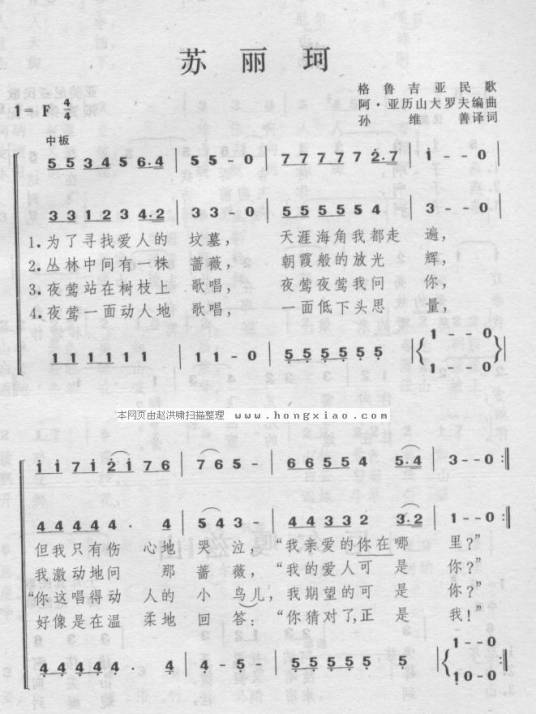 苏丽珂
格鲁吉亚民歌
1=F 4/4
阿·亚历山大罗夫编曲
孙维善译词
中板
5 5 3 4 5 6 6·4 | 5 5 - 0 | 7 7 7 7 7 7 2·7 | 1 - - 0 |
3 3 1 2 3 4 4·2 | 3 3 - 0 | 5 5 5 5 5 5 5 4 | 3 - - 0 |
1.为了寻找爱人的 坟墓， 天涯海角我都走 遍，
2.丛林中间有一株 蔷薇， 朝霞般的放光 辉，
3.夜莺站在树枝上 歌唱， 夜莺夜莺我问 你，
4.夜莺一面动人地 歌唱， 一面低下头思 量，
1 1 1 1 1 1 1 | 1 1 - 0 | 5 5 5 5 5 5 5 | 1 - - 0
1 - - 0
本网页由赵洪啸扫描整理 www.hongxiao.com
1 1 7 1 2 1 7 6 | 7 6 5 - | 6 6 5 5 4 4 5·4 | 3 - - 0 :||
4 4 4 4 4 · 4 | 5 4 3 - | 4 4 3 3 2 2 3·2 | 1 - - 0 :||
但我只有伤 心地 哭泣，“我亲爱的你在哪 里？”
我激动地问 那 蔷薇，“我的爱人可是 你？”
“你这唱得动 人的 小鸟儿，我期望的可是 你？”
好像是在温 柔地 回答：“你猜对了正是 我！”
1 - - 0
4 4 4 4 4 · 4 | 5 5 5 - | 5 5 5 5 5 · 5 |
1 0 - 0 :||